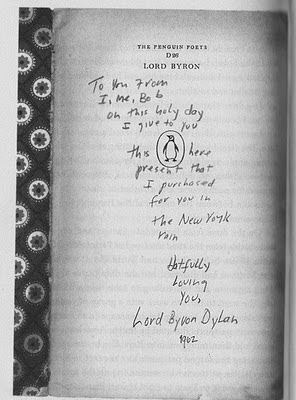 THE PENGUIN POETS
D26
LORD BYRON
To You From
I, Me, Bob
on this holy day
I give to you
this here
present that
I purchased
for you in
the New York
rain
Hotfully
Loving
You,
Lord Byron Dylan
1962